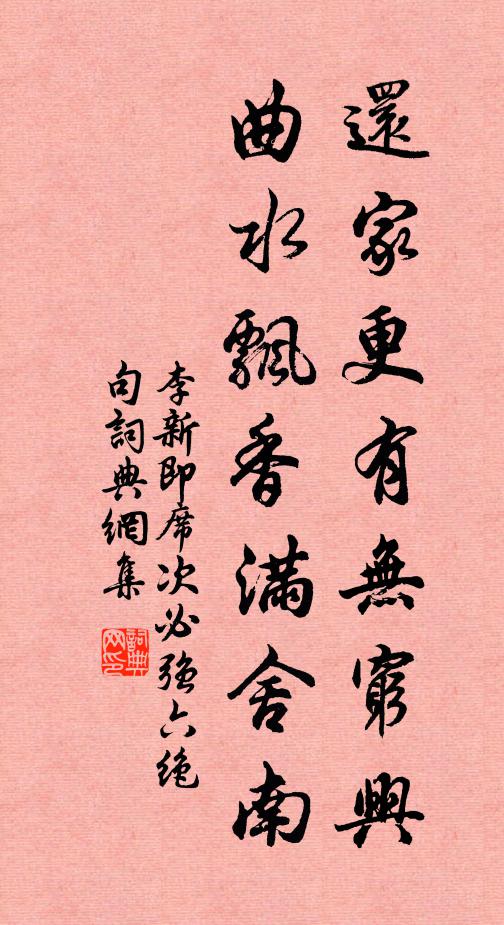 還家更有無窮興
曲水飄香滿舍南
李新即席次必強六絶
句詞典網集
詞典網印